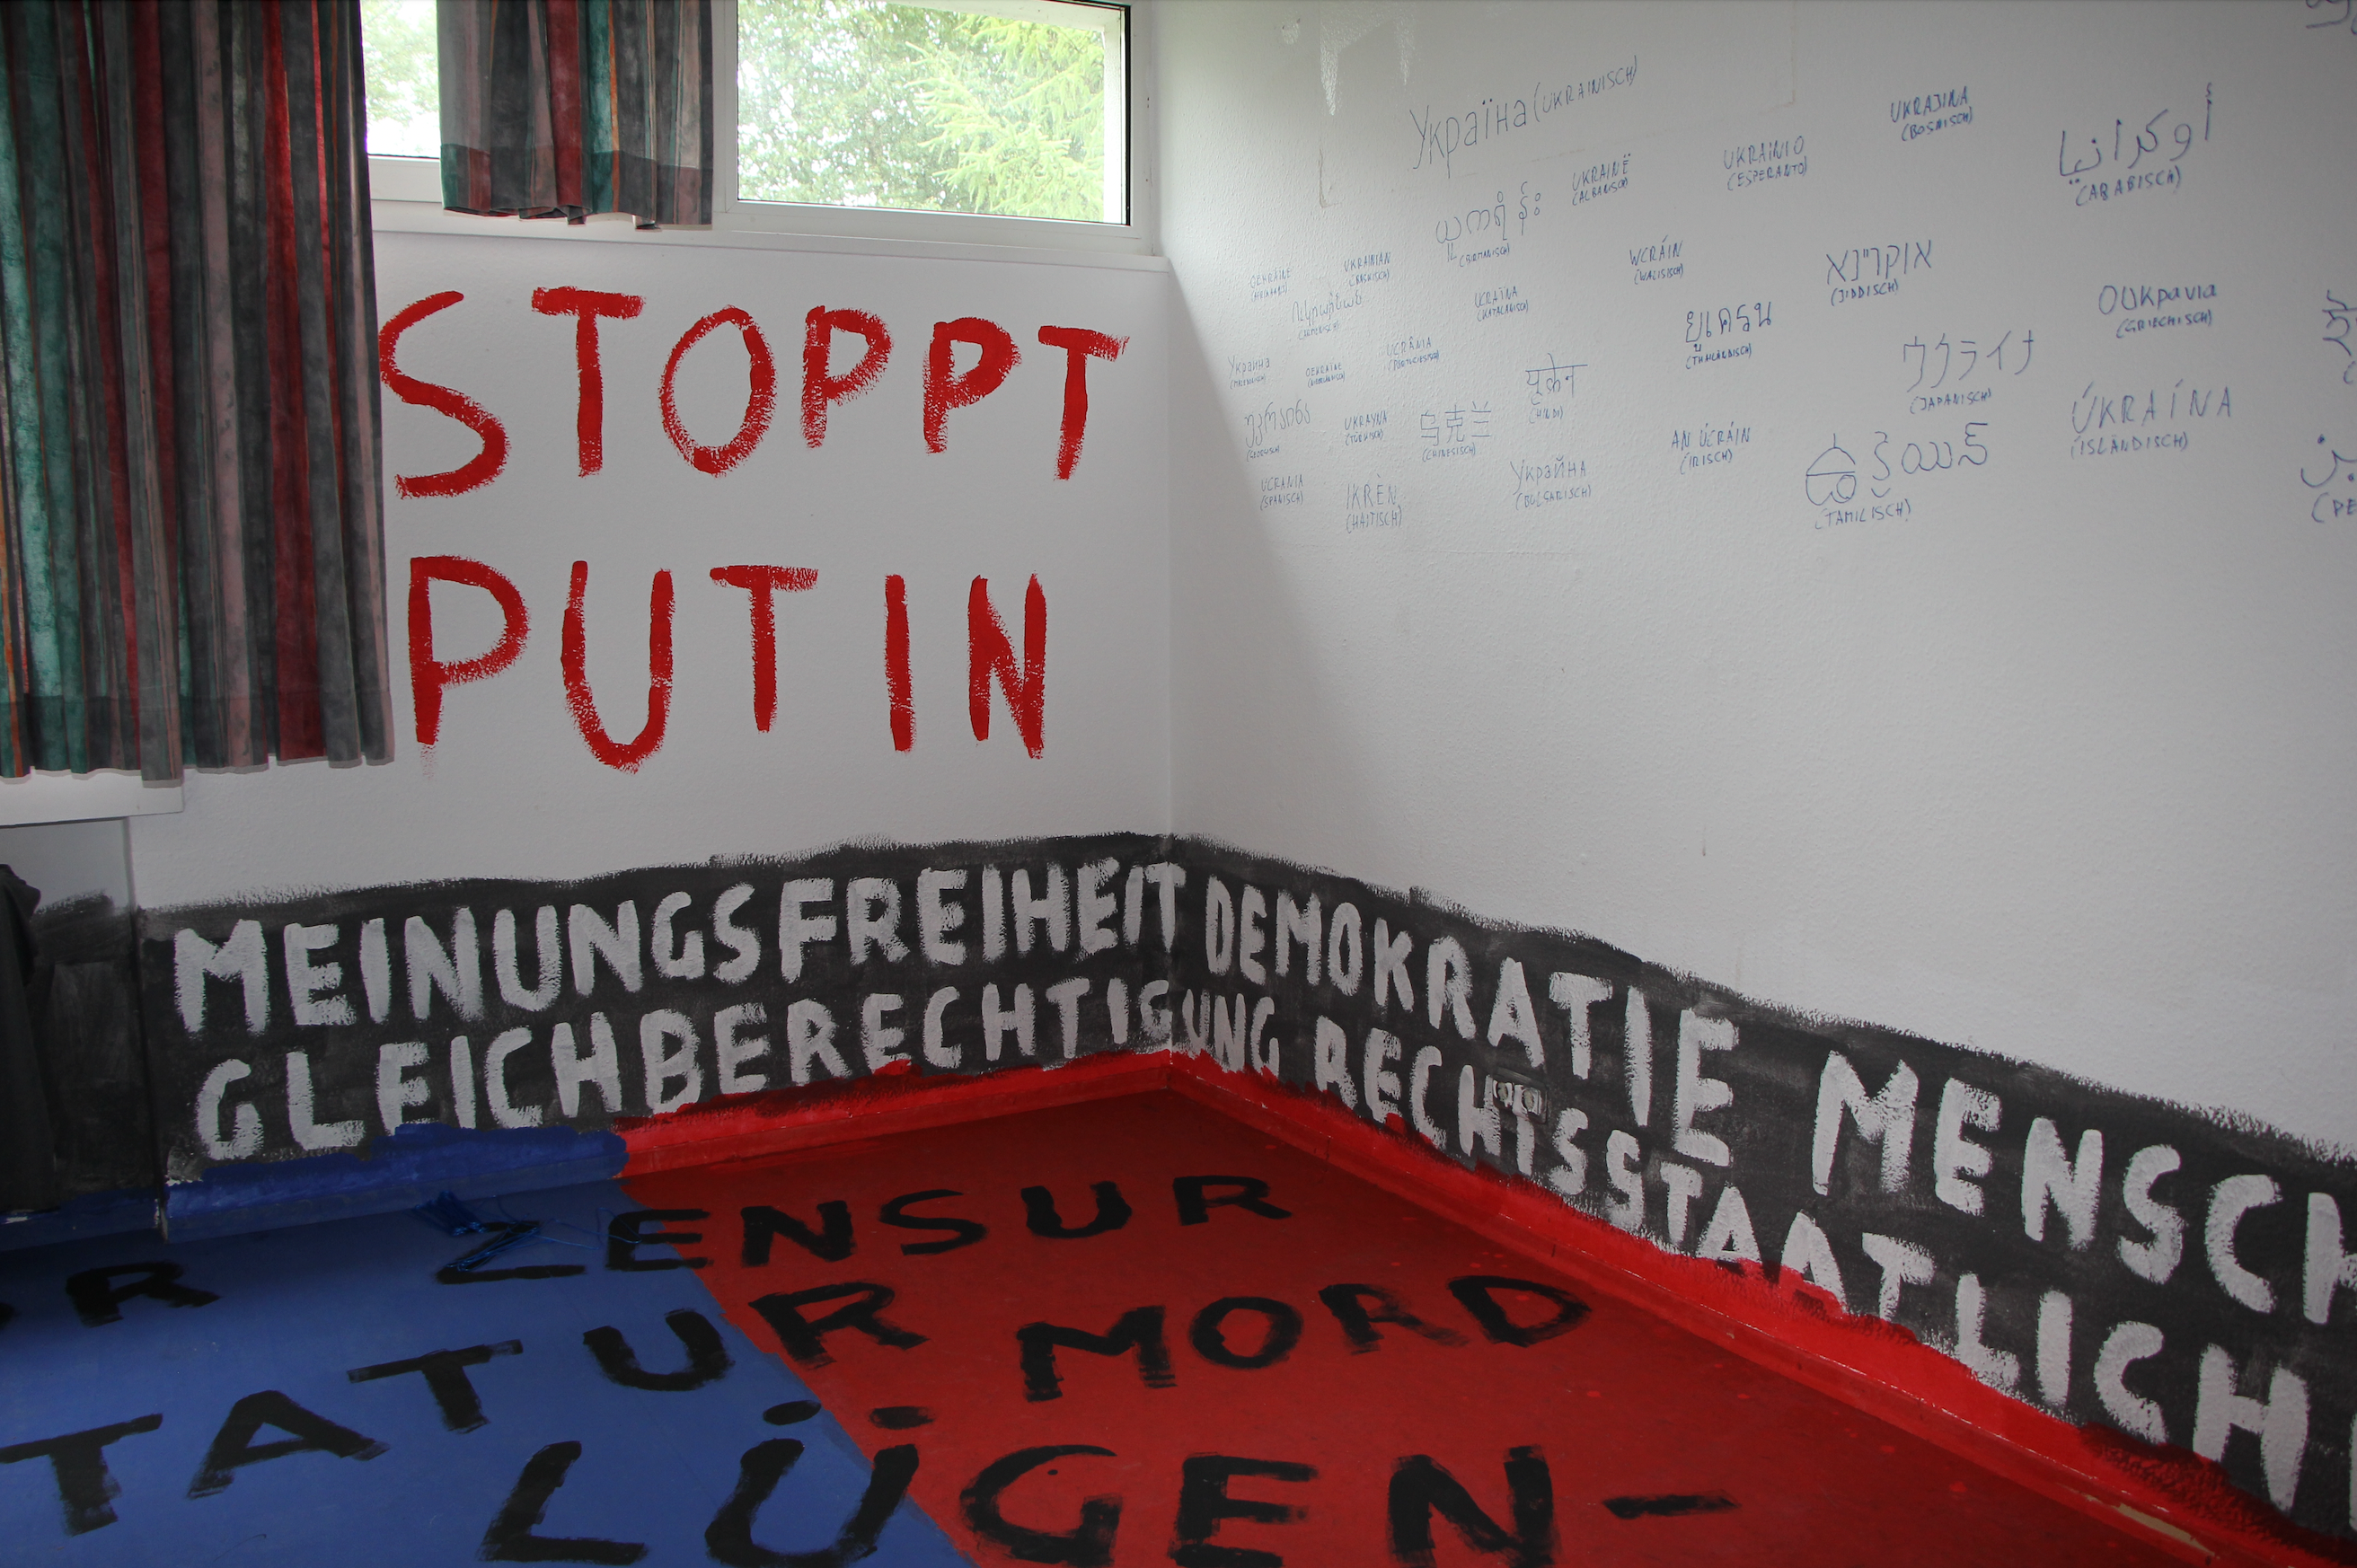 STOPPT
PUTIN
Україна (UKRAINISCH)
UKRAJINA
(BOSNISCH)
أوكرانيا
(ARABISCH)
UKRAINIO
(ESPERANTO)
UKRAINË
(ALBANISCH)
ယူကရိန်း
(BIRMANISCH)
UKRAINIAN
(BASKISCH)
WCRÁIN
(WALISISCH)
אוקריינא
(JIDDISCH)
Ουκρανία
(GRIECHISCH)
UCRAÏNA
(KATALANISCH)
ยูเครน
(THAILÄNDISCH)
ウクライナ
(JAPANISCH)
UCRÂNIA
(PORTUGIESISCH)
Украина
OEKRAÏNE
यूक्रेन
(HINDI)
ÚKRAÍNA
(ISLÄNDISCH)
UKRAYNA
(TÜRKISCH)
乌克兰
(CHINESISCH)
AN ÚCRÁIN
(IRISCH)
(TAMILISCH)
UCRANIA
(SPANISCH)
IKRÈN
(HAITISCH)
Украйна
(BULGARISCH)
MEINUNGSFREIHEIT DEMOKRATIE MENSCH
GLEICHBERECHTIGUNG RECHTSSTAATLICH
R ZENSUR
TATUR MORD
LÜGEN-